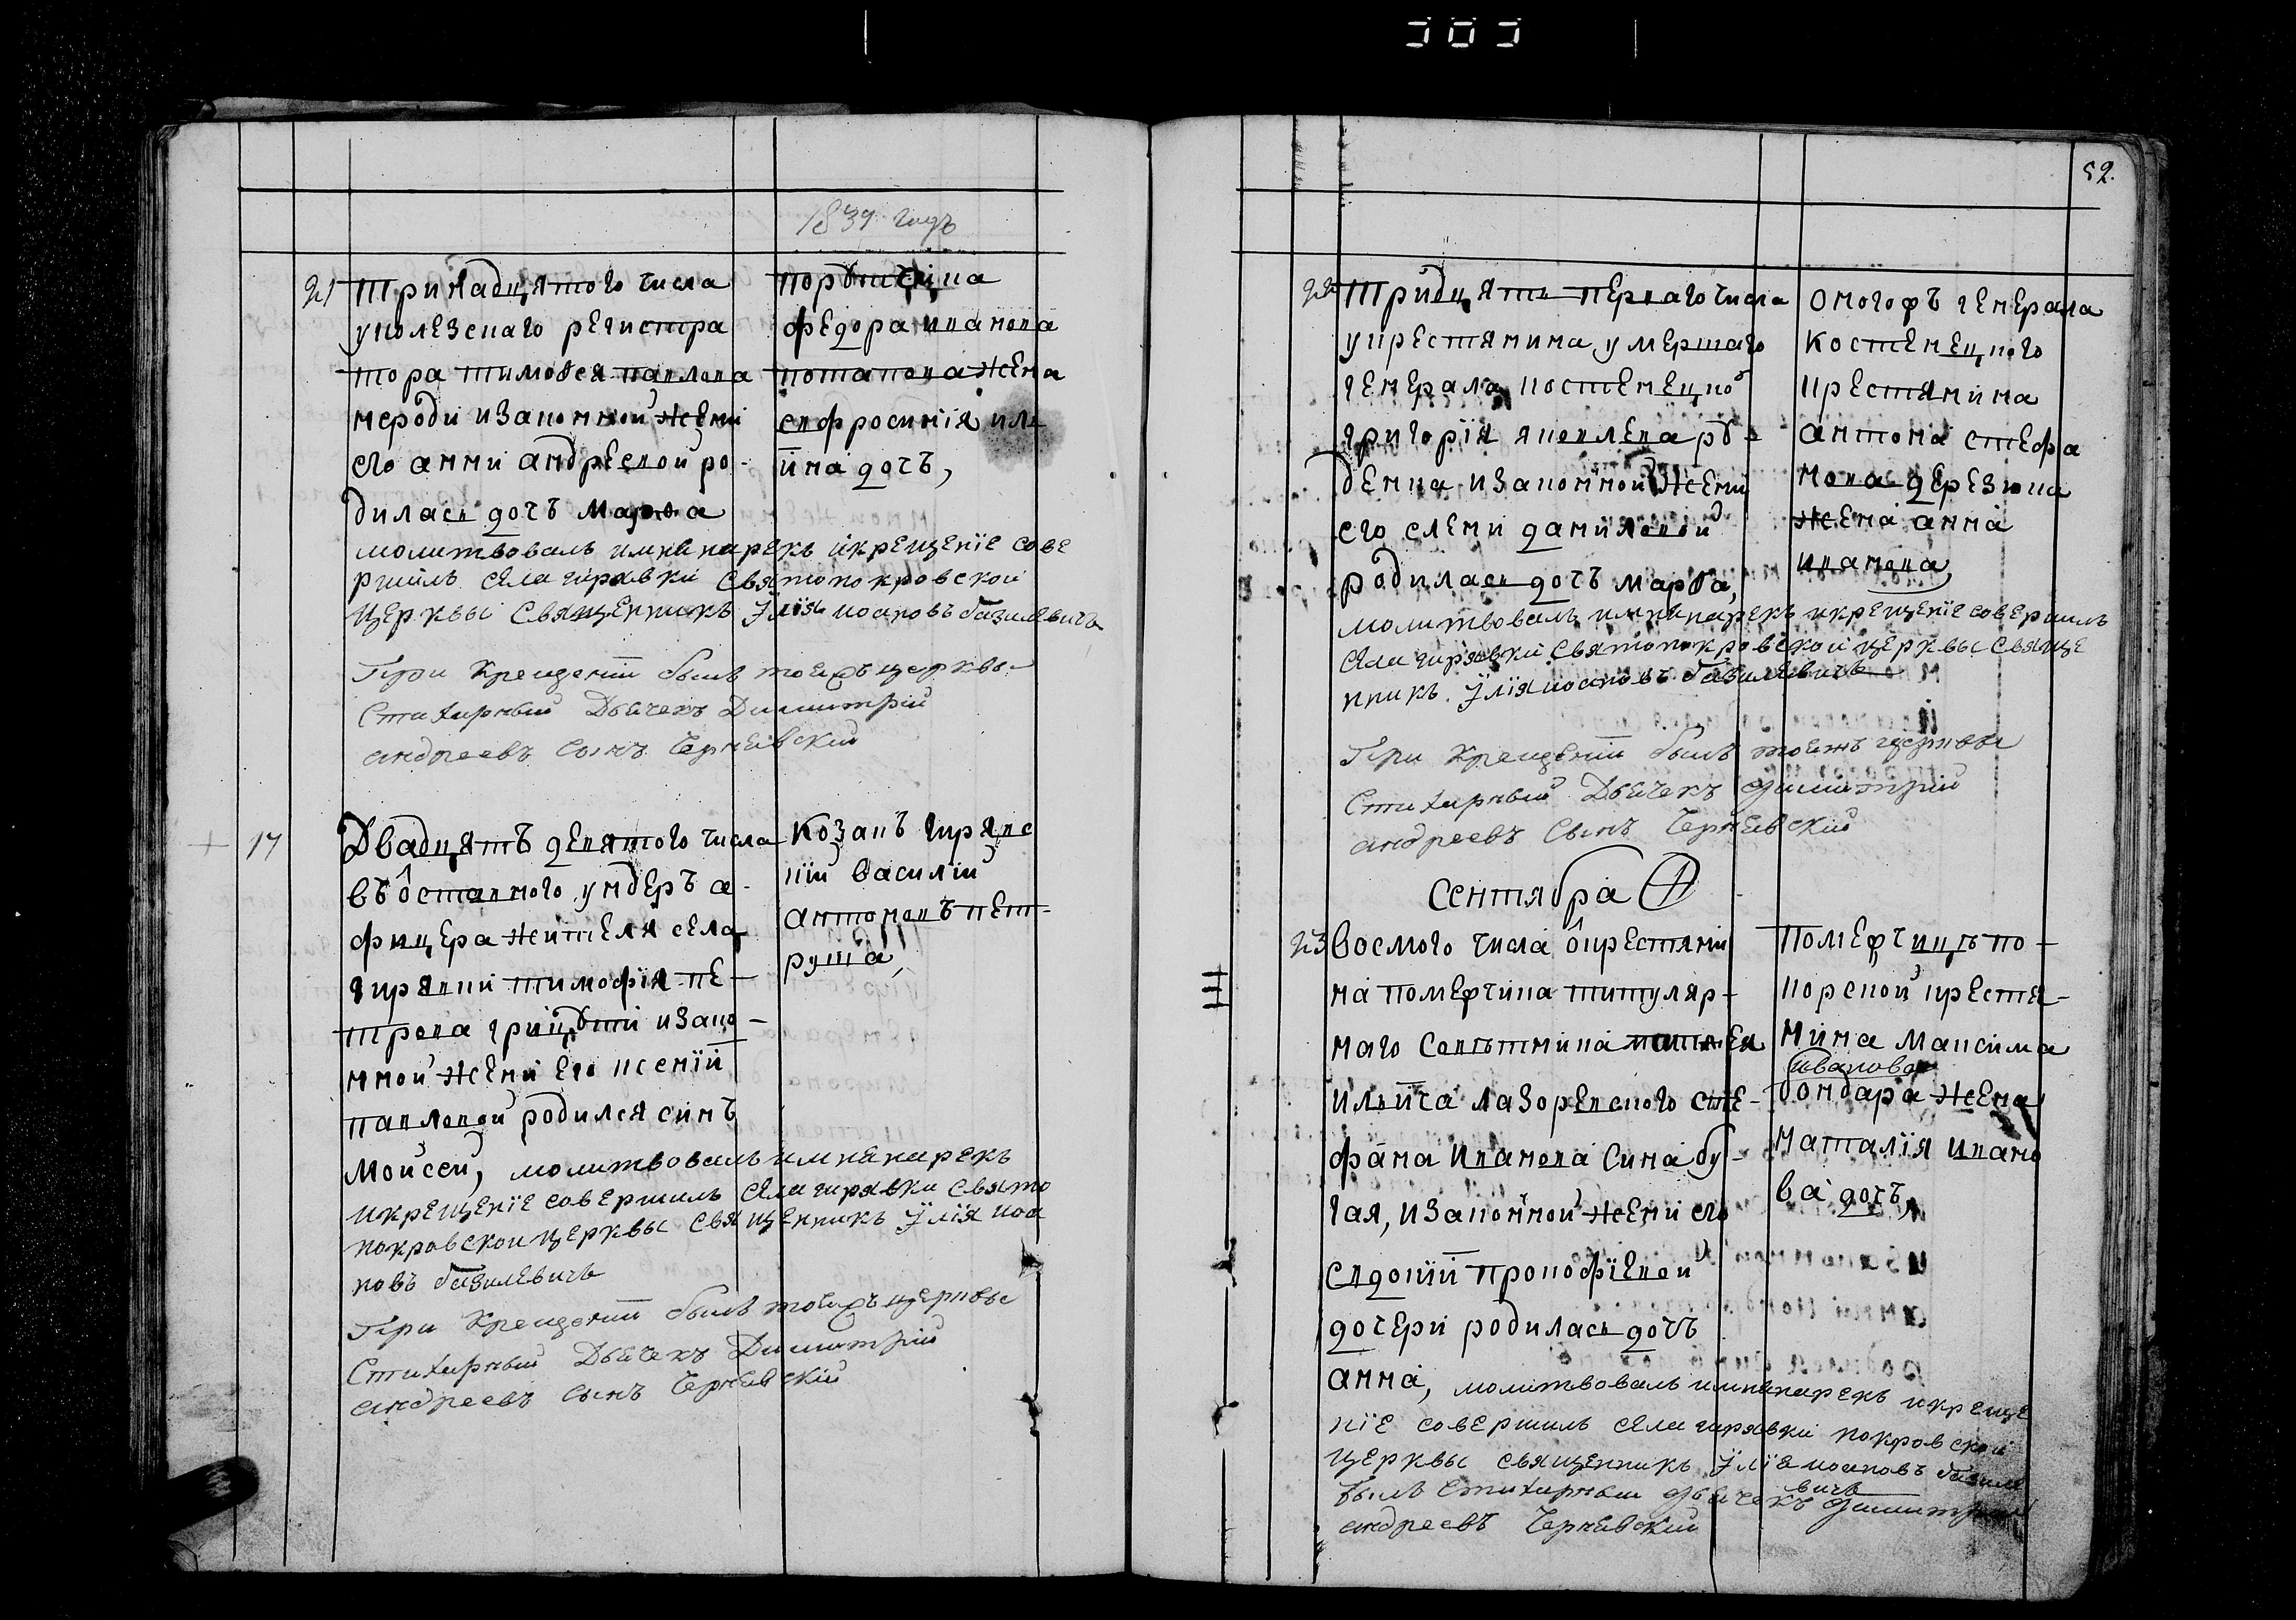 1839 годъ
21
тринадцятого числа
уколезскаго регистра
тора тимоѳея павлова
нероди изаконной жени
его анни андреевой ро-
дилась дочь марѳа
молитвовалъ имя нарекъ икрещенїе сове
ршилъ села гирявки Святопокровской
церквы Священникъ Їлїя иоановъ базилевичъ
При крещенїи былъ тоеижъ церквы
Стихарный Дьячекъ Димитрїй
андреевъ сынъ Чернявскїй
порутчика
федора иванова
потапова жена
евфросинїя иль
ина дочъ,
17
Двадцять девятого числа
въ ôставного ундеръ а-
фицера жителя села
гирявки тимофїя пе-
трова грицути изако-
нной жени его ксенїй
павловой родился синъ
Мойсей, молитвовалъ имя нарекъ
икрещенїе совершилъ села гирявки свято
покровской церквы священникъ Їлїя иоа
новъ базилевичъ
При крещенїи былъ тоеижъ церквы
Стихарный Дьячекъ Димитрїй
андреевъ сынъ Чернявскїй
козакъ гирявс
кїй василїй
антоновъ пет-
руша,
52.
22
тридцять первого числа
укрестянина умершаго
генерала костенецко
григорїя яковлева ру-
денка изаконной жени
его елени даниловой
родилась дочъ марѳа,
молитвовалъ имя нарекъ икрещенїе совершилъ
села гирявки святопокровской церквы свяще
нникъ Їлїя иоановъ базилевичъ
При крещенїи былъ тоежъ церквы
Стихарный Дьячекъ Димитрїй
андреевъ сынъ Чернявскїй
омогофъ генерала
костенецкого
крестянина
антона стефа
нова дерезюка
жена анна
иванова
Сентября
23
восмого числа ôкрестяни
на помещика титуляр-
наго Советника матвея
ильича лазоревского сте-
фана Иванова сина бу-
гая, изаконной жени его
евдокїй прокофїевой
дочери родилась дочъ
анна, молитвовалъ имя нарекъ икреще
нїе совершилъ села гирявки покровской
церквы священникъ Їлїя иоановъ базиле
вичъ
былъ Стихарный дьячекъ Димитрїй
андреевъ Чернявскїй
помещицъ по-
корской крестя-
нина Максима
иванова
бондара жена
наталїя ивано
ва дочъ,